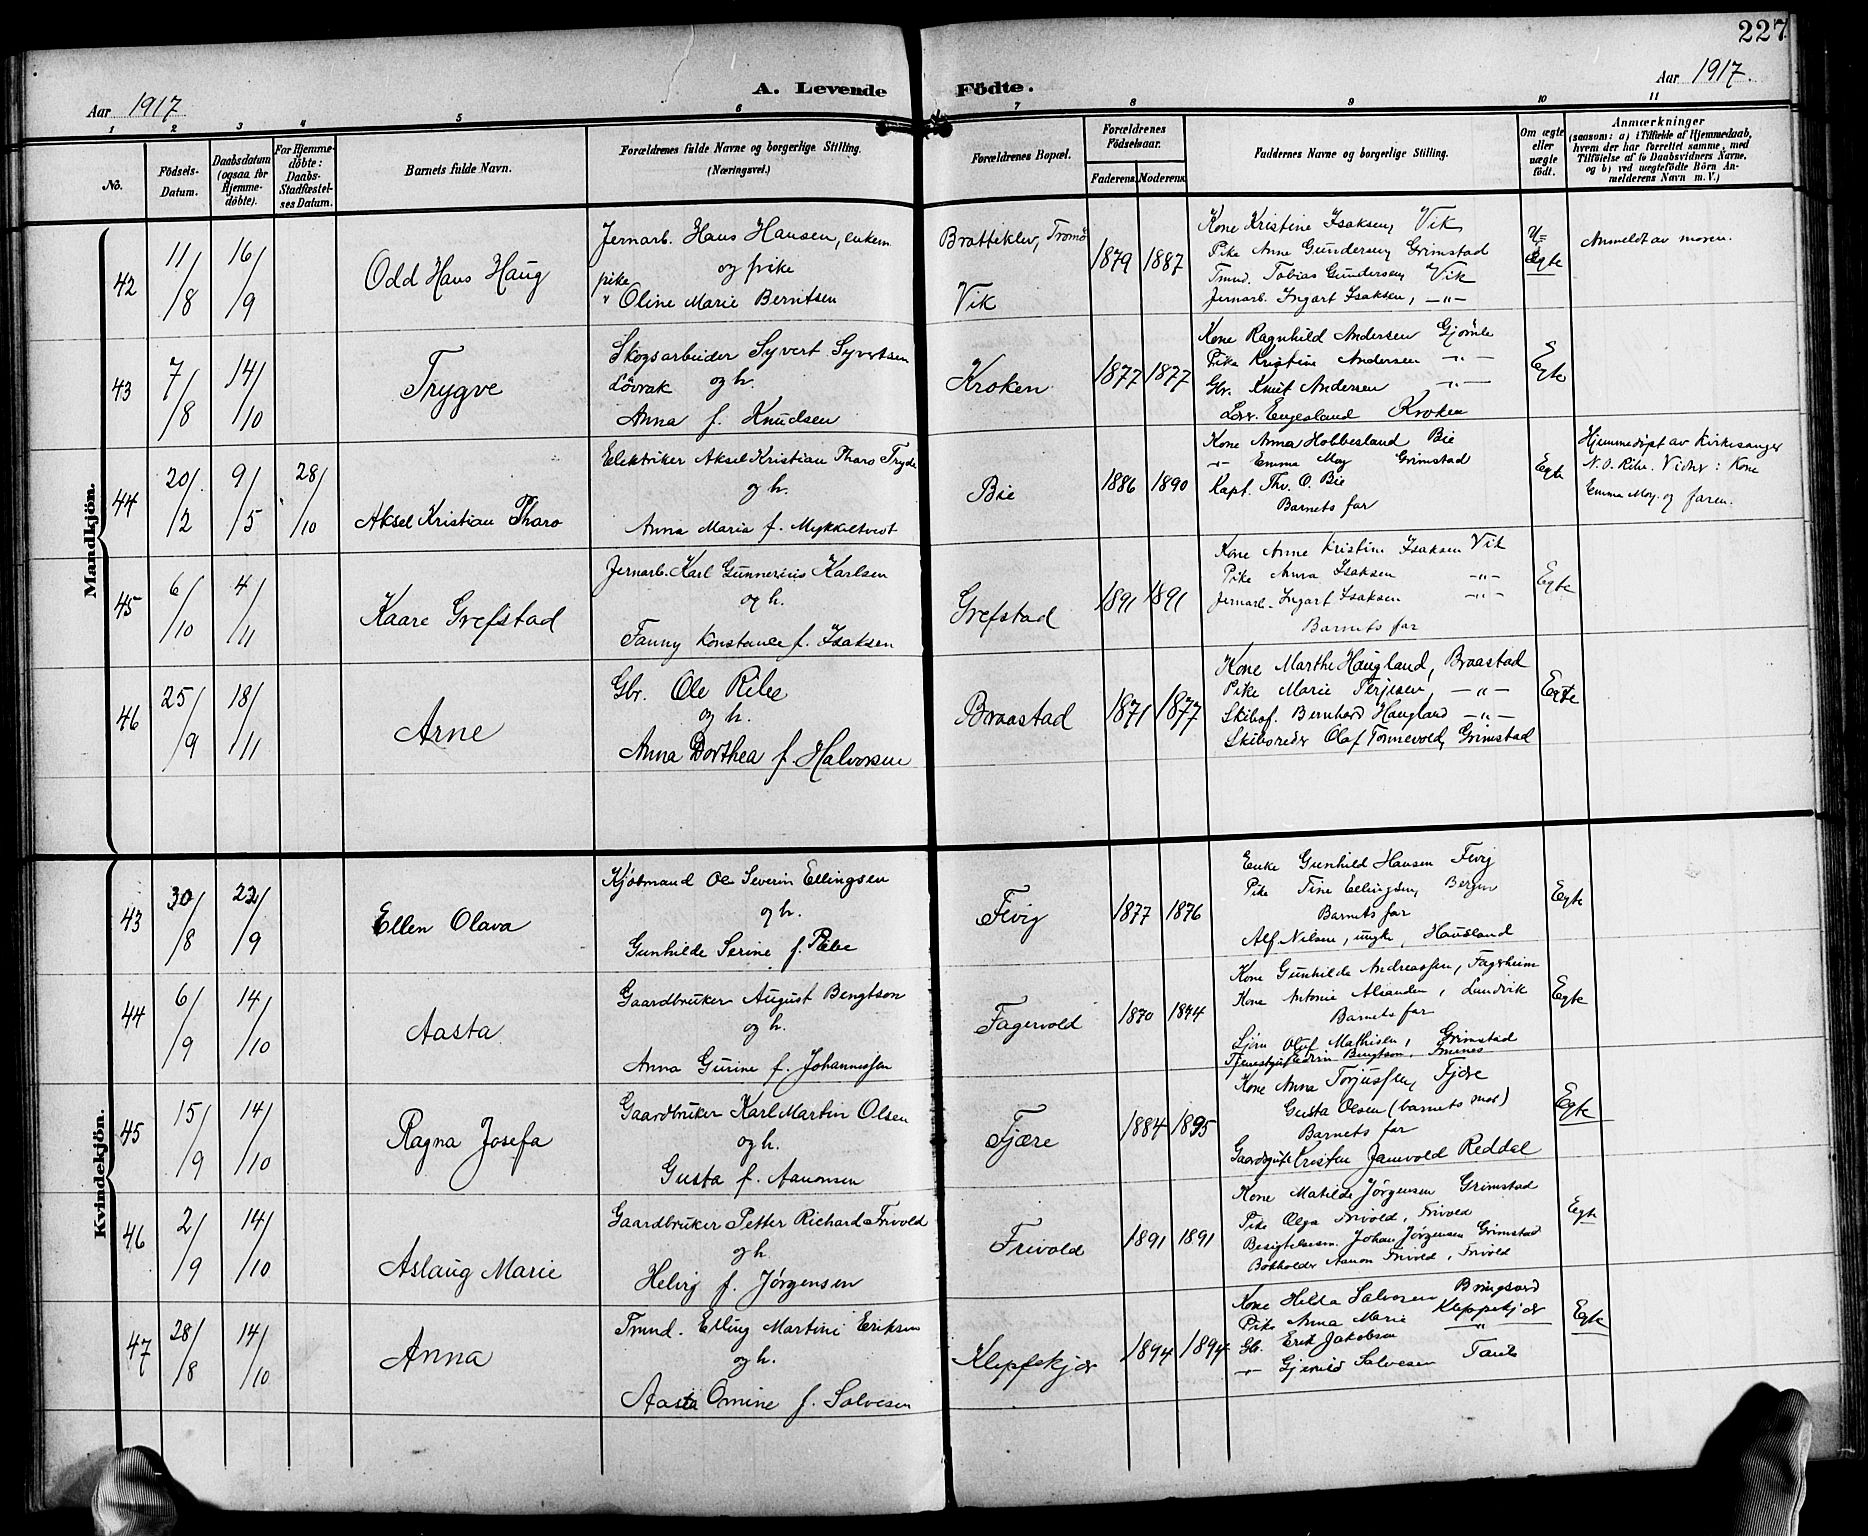 227
Aar 1917
A. Levende Födte.
Aar 1917.
1 2 3 4 5 6 7 8 9 10 11
No.
Födsels-Datum.
Daabsdatum (ogsaa for Hjemme-döbte).
For Hjemme-döbte: Daabs-Stadfæstel-ses Datum.
Barnets fulde Navn.
Forældrenes fulde Navne og borgerlige Stilling.
(Næringsvei.)
Forældrenes Bopæl.
Forældrenes Födselsaar.
Faderens. Moderens.
Faddernes Navne og borgerlige Stilling.
Om ægte eller uægte födt.
Anmærkninger
(saasom: a) i Tilfælde af Hjemmedaab, hvem der har forrettet samme, med Tilföielse af to Daabsvidners Navne, og b) ved uægtefödte Börn An-melderens Navn m. V.)
Mandkjön.
42 11/8 16/9 Odd Hans Haug
Jernarb. Hans Hansen, enkem.
og pike
pike Oline Marie Berntsen
Brattiklev, Tromö
Vik
1879 1887
Kone Kristine Isaksen, Vik
Pike Anne Gundersen, Grimstad
Tmd. Tobias Gundersen, Vik
Jernarb. Ingart Isaksen, —„—
U=
Egte
Anmeldt av moren.
43 7/8 14/10 Trygve
Skogsarbeider Syvert Syvertsen
Lövrak og h.
Anna f. Knudsen
Kroken
1877 1877
Kone Ragnhild Andersen Gjömle
Pike Kristine Andersen —„—
Gbr. Knut Andersen —„—
Engesland Kroken
Egte
44 20/2 9/5 28/10 Aksel Kristian Tharo
Elektriker Aksel Kristian Tharo Tryde
og h.
Anna Maria f. Mykkeltvedt
Bie
1886 1890
Kone Anna Hobbesland Bie
—„— Emma Moy Grimstad
Kapt. Thv. O. Bie
Barnets far
Egte
Hjemmedöpt av Kirkesanger
N. O. Ribe. Vidner: Kone
Emma Moy og faren.
45 6/10 4/11 Kaare Grefstad
Jernarb. Karl Gunnerius Karlsen
og h.
Fanny Konstance f. Isaksen
Grefstad
1891 1891
Kone Anne Kristine Isaksen Vik
Pike Anna Isaksen —„—
Jernarb. Ingart Isaksen —„—
Barnets far
Egte
46 25/9 18/11 Arne
Gbr. Ole Ribe
og h.
Anna Dorthea f. Halvorsen
Braastad
1871 1877
Kone Marthe Haugland, Braastad
Pike Marie Terjesen, —„—
Skibsf. Bernhard Haugland —„—
Skibsreder Olaf Tönnevold, Grimstad
Egte
Kvindekjön.
43 30/8 22/9 Ellen Olava
Kjöbmand Ole Severin Ellingsen
og h.
Gunhilde Serine f. Ribe
Fevig
1877 1876
Enke Gunhild Hansen Fevig
Pike Tine Ellingsen, Bergen
Barnets far
Alf Nilsen, ungk., Hausland
Egte
44 6/9 14/10 Aasta
Gaardbruker August Bengtson
og h.
Anna Gurine f. Johannessen
Fagervold
1870 1874
Kone Gunhilde Andreassen, Fagerheim
Kone Antonie , Lundvik
Barnets far
Sjöm. Oluf Mathisen, Grimstad
Tjenestegut Edvin Bengtson,
Egte
45 15/9 14/10 Ragna Josefa
Gaardbruker Karl Martin Olsen
og h.
Gusta f. Aanonsen
Fjære
1884 1895
Kone Anna Torjussen, Fjære
Gusta Olsen (barnets mor)
Barnets far
Gaardsgut Kristen Reddal
Egte
46 2/9 14/10 Aslaug Marie
Gaardbruker Petter Richard Frivold
og h.
Helvig f. Jörgensen
Frivold
1891 1891
Kone Matilde Jörgensen Grimstad
Pike Olga Frivold, Frivold
Besigtelsesm. Johan Jörgensen Grimstad
Bokholder Aanon Frivold, Frivold
Egte
47 28/8 14/10 Anna
Tmd. Elling Martini Eriksen
og h.
Aasta Omine f. Salvesen
Kleppekjær
1894 1894
Kone Hilda Salvesen Bringsverd
Pike Anna Marie Kleppekjær
Gb. Erik Jakobsen —„—
—„— Salvesen
Egte